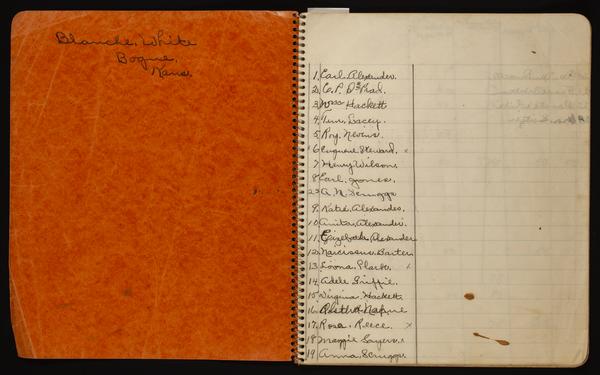 Blanche White
Bogue,
Kans.
1. Earl Alexander.
2. C. P. DePrad.
3. Wm Hackett
4. Tim. Lacey.
5. Roy. Nevins.
6. Eugene Steward. x
7. Henry Wilson
8. Earl. Jones.
22 A. N. Scruggs
9. Katie. Alexander.
10. Anita. Alexander.
11. Elizabeth. Alexander
12. Narcissus. Barter
13. Loona.
14. Adele Griffie.
15. Virginia. Hackett.
16.
17. Rosa. Reece. x
18. Maggie Sayers.
19. Anna. Scruggs